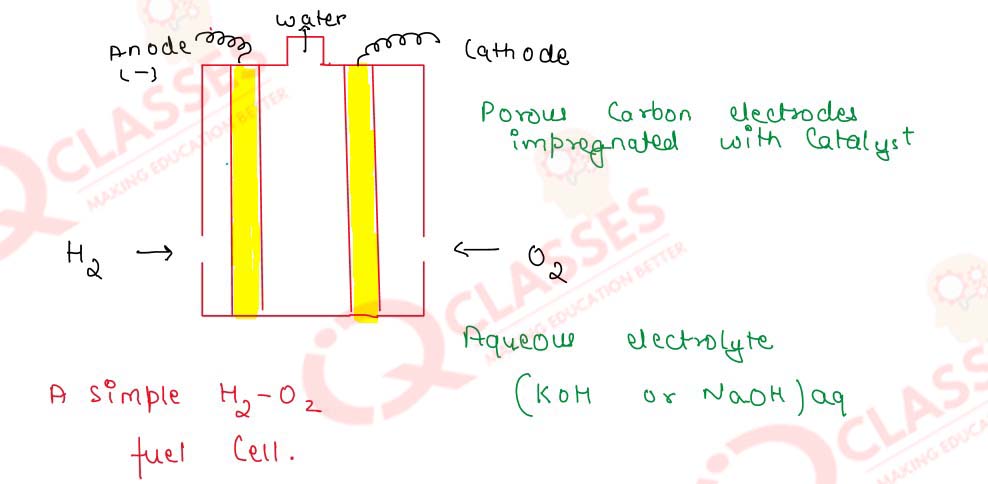 water
Anode
(-)
Cathode
Porous Carbon electrodes
impregnated with Catalyst
H2 →
← O2
Aqueous electrolyte
(KOH or NaOH)aq
A simple H2-O2
fuel Cell.
CLASSES
MAKING EDUCATION BETTER
QCLASSES
MAKING EDUCATION BETTER
CLASS
MAKING EDUCA